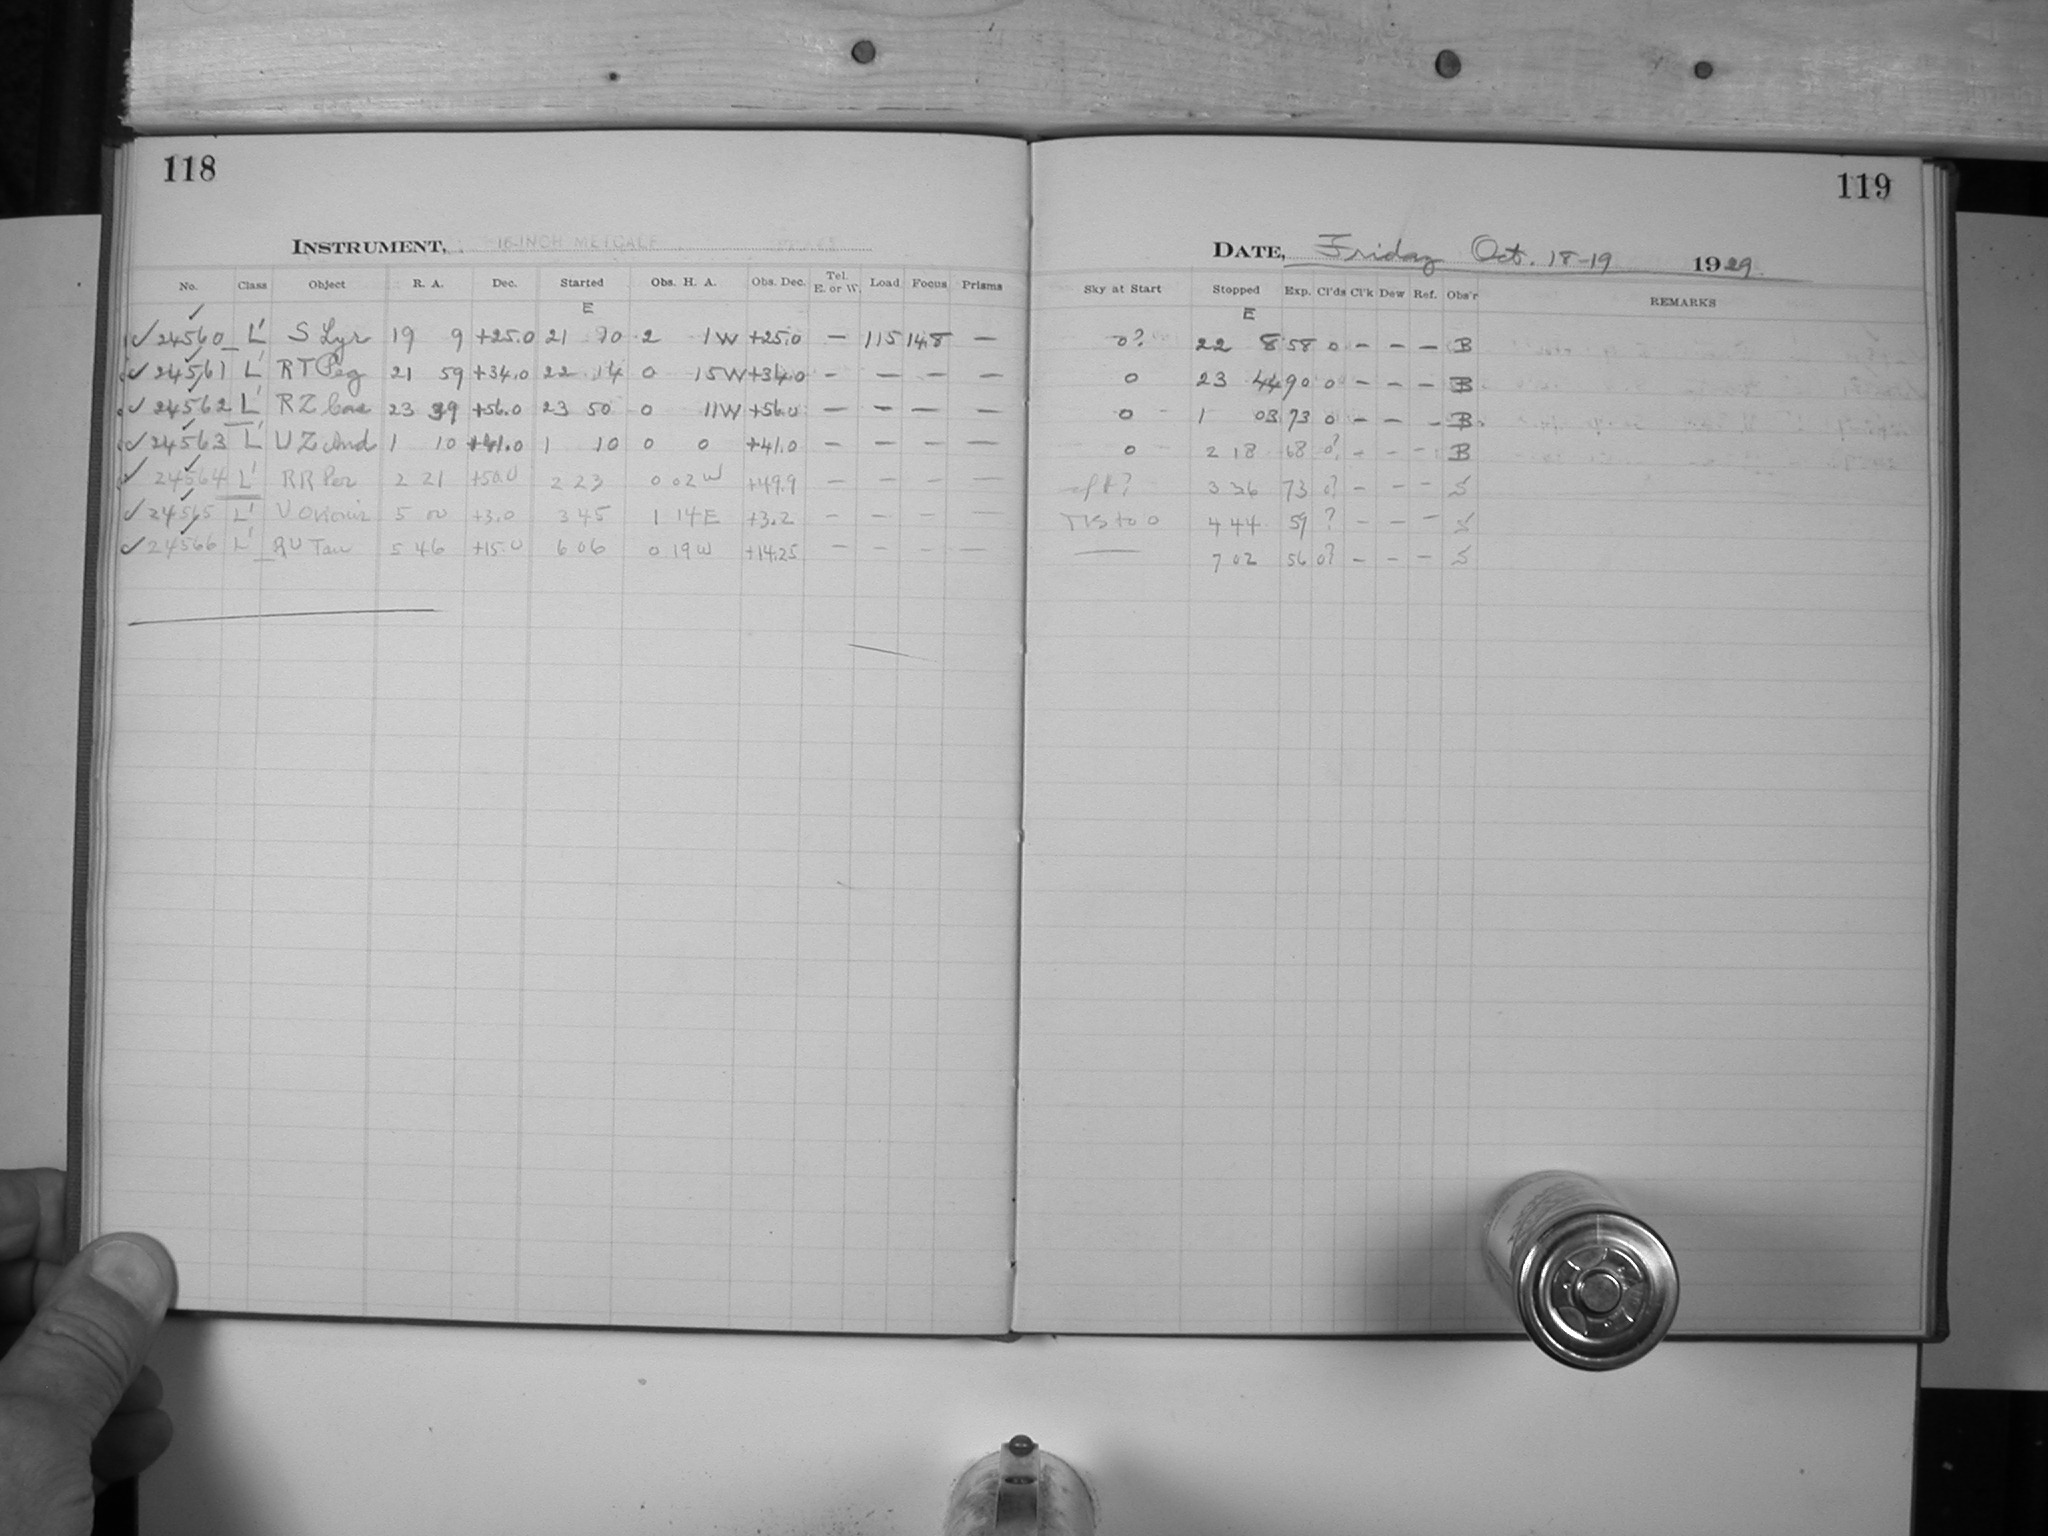 118
INSTRUMENT, 16-INCH METCALF
No. Class Object R. A. Dec. Started Obs. H. A. Obs. Dec. Tel. E. or W. Load Focus Prisms
E
✓ 24560 L' S Lyr 19 9 +25.0 21 10 2 1W +25.0 — 115 14.8 —
✓ 24561 L' RT Peg 21 59 +34.0 22 14 0 15W +34.0 — — — —
✓ 24562 L' RZ Cas 23 39 +56.0 23 50 0 11W +56.0 — — — —
✓ 24563 L' UZ And 1 10 +41.0 1 10 0 0 +41.0 — — — —
✓ 24564 L' RR Per 2 21 +50.0 2 23 0 02W +49.9 — — — —
✓ 24565 L' V Orionis 5 00 +3.0 3 45 1 14E +3.2 — — — —
✓ 24566 L' RU Tau 5 46 +15.0 6 06 0 19W +14.25 — — — —
119
DATE, Friday Oct. 18-19 1929
Sky at Start Stopped Exp. Cl'ds Cl'k Dew Ref. Obs'r REMARKS
E
0? 22 8 58 0 — — — B
0 23 44 90 0 — — — B
0 1 03 73 0 — — — B
0 2 18 68 0? — — — B
3 36 73 0? — — — S
to 0 4 44 59 ? — — — S
— 7 02 56 0? — — — S